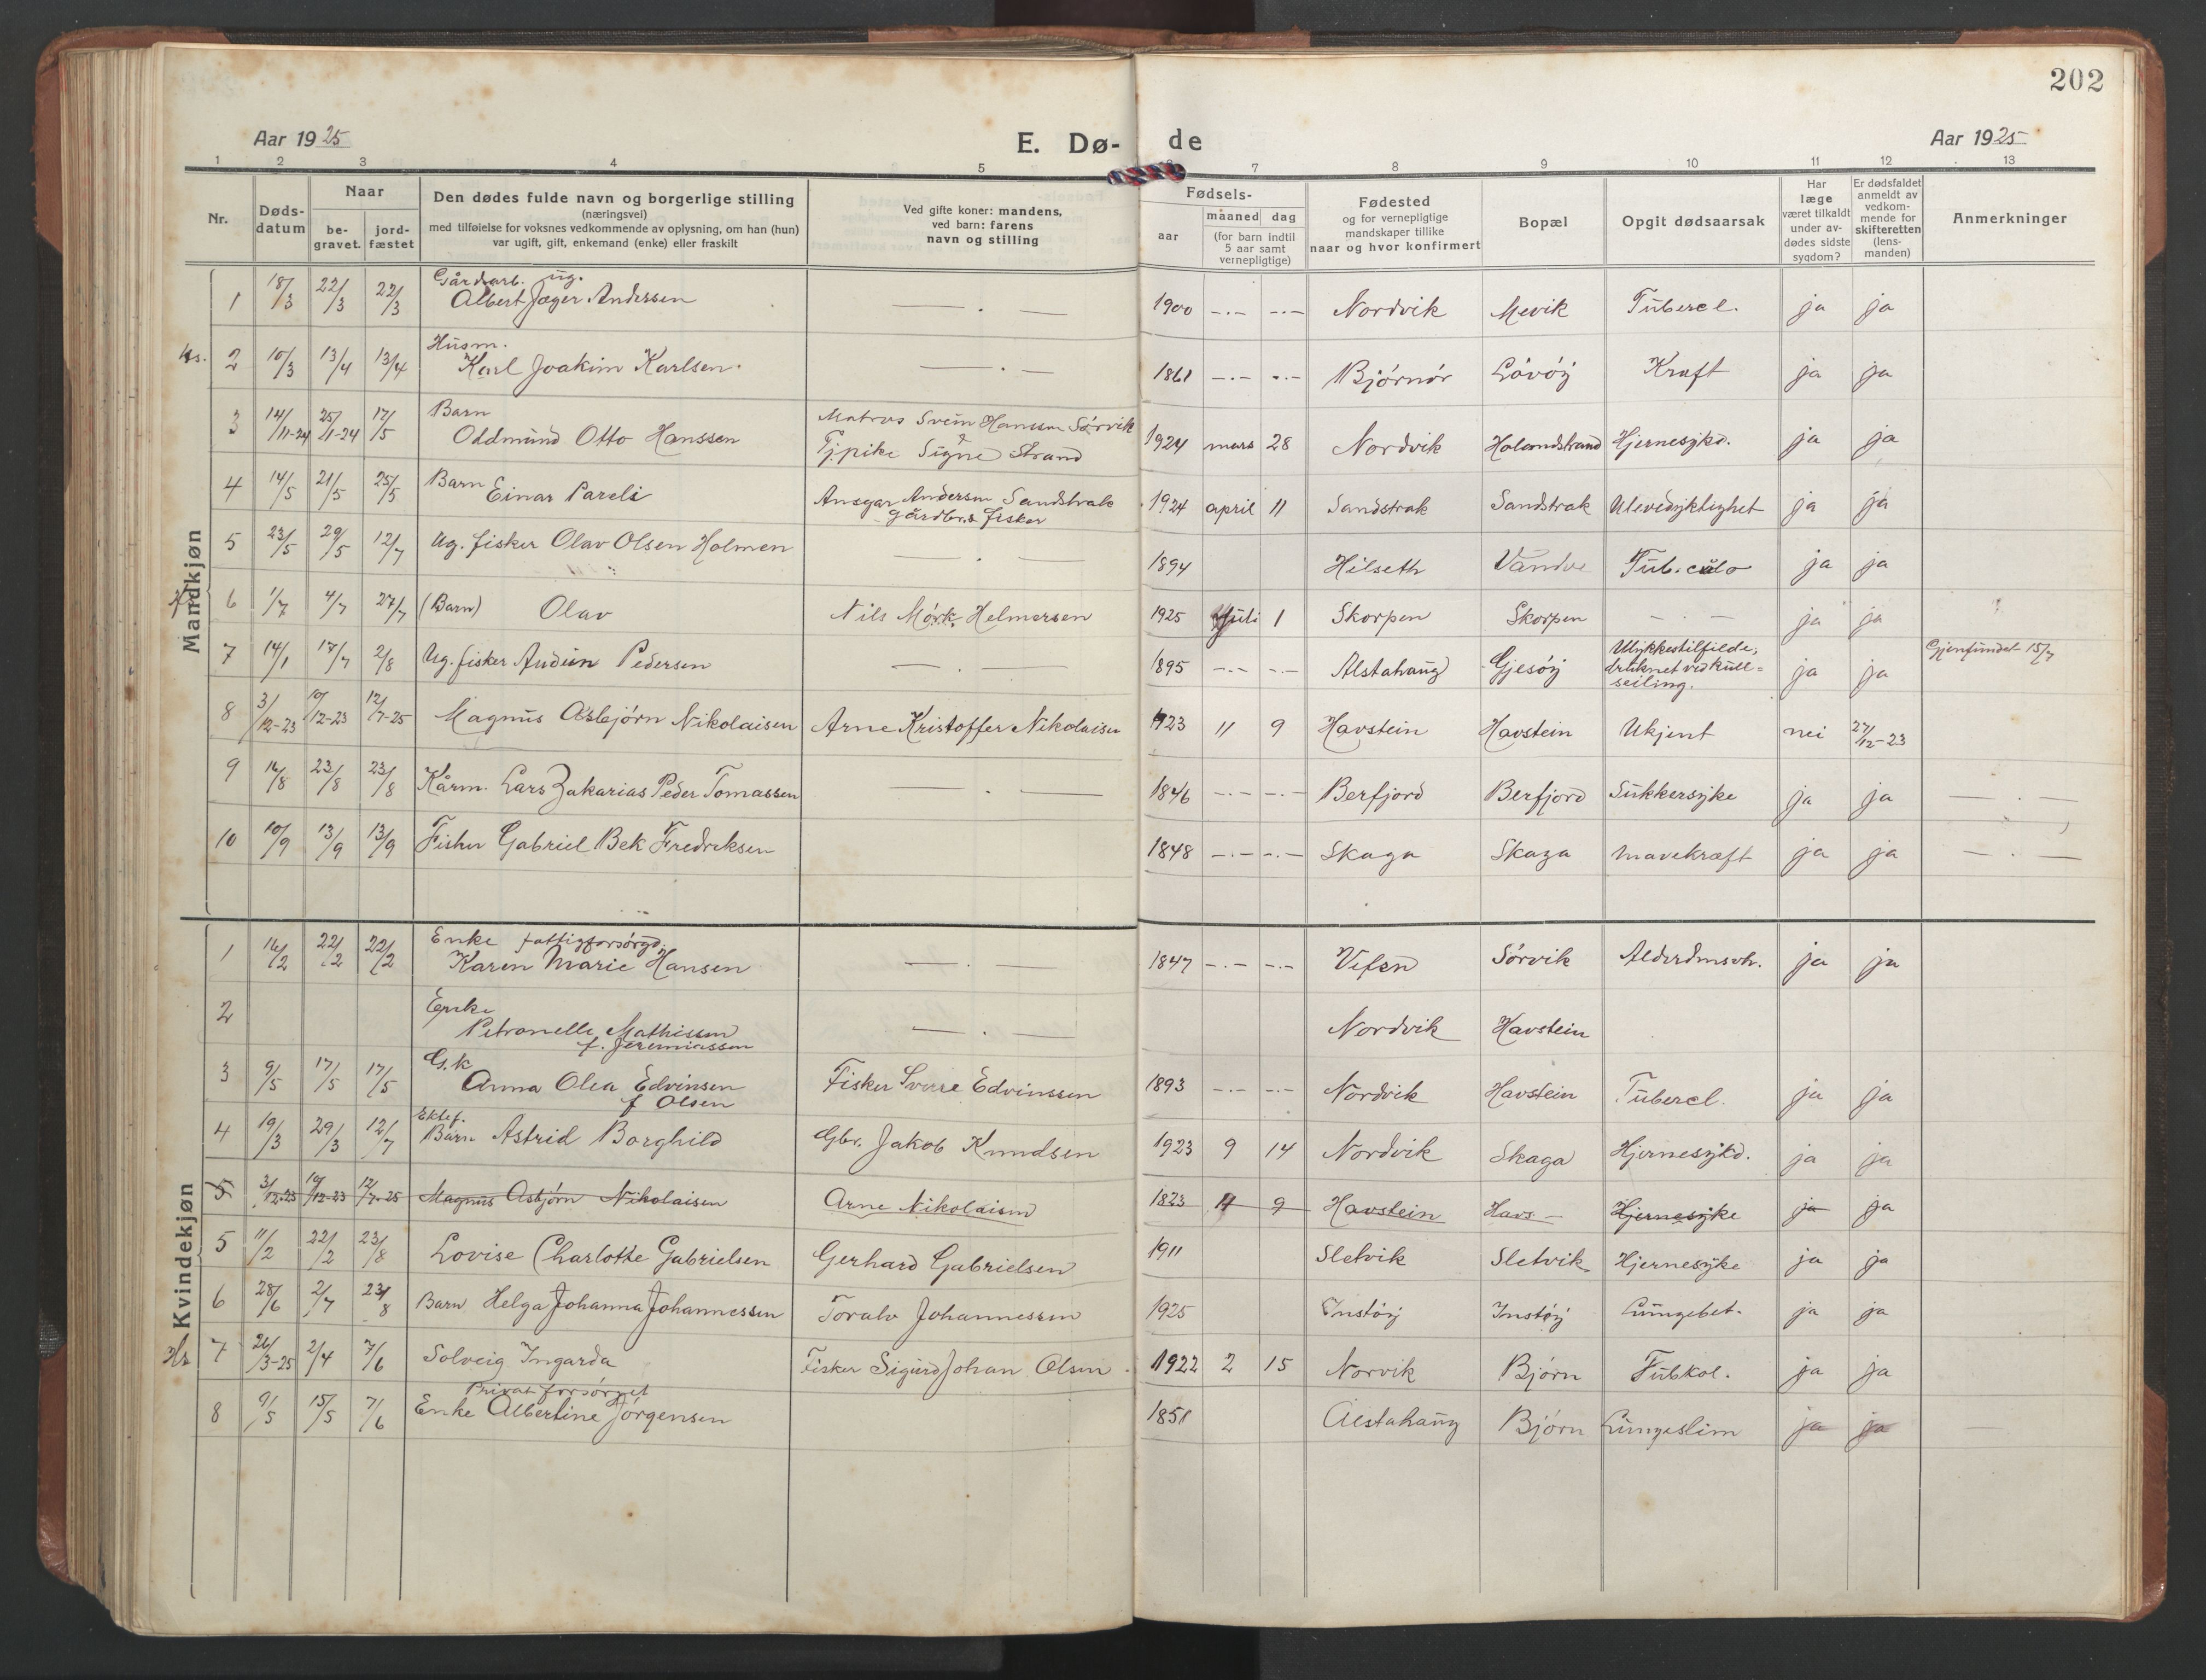 202
Aar 1925
E. Dø-
de
Aar 1925
1 2 3 4 5 7 8 9 10 11 12 13
Nr.
Døds-
datum
Naar
be-
gravet.
jord-
fæstet
Den dødes fulde navn og borgerlige stilling
(næringsvei)
med tilføielse for voksnes vedkommende av oplysning, om han (hun)
var ugift, gift, enkemand (enke) eller fraskilt
Ved gifte koner: mandens,
ved barn: farens
navn og stilling
Fødsels-
aar
maaned dag
(for barn indtil
5 aar samt
vernepligtige)
Fødested
og for vernepligtige
mandskaper tillike
naar og hvor konfirmert
Bopæl
Opgit dødsaarsak
Har
læge
været tilkaldt
under av-
dødes sidste
sygdom?
Er dødsfaldet
anmeldt av
vedkom-
mende for
skifteretten
(lens-
manden)
Anmerkninger
Mandkjøn
Gårdarb. ug.
1 18/3 22/3 22/3 Albert Jæger Andersen — . — 1900 -.- -.- Nordvik Mevik Tubercl. ja ja
Husm.
2 10/3 13/4 13/4 Karl Joakim Karlsen. — . — 1861 -.- -.- Bjørnør Løvøy Kræft ja ja
Barn
3 14/11-24 25/11-24 17/5 Oldmund Otto Hanssen Matros Svein Hanssen Sørvik
Tj.pike Signe Strand 1924 mars 28 Nordvik Holandstrand Hjernesykd. ja ja
4 14/5 21/5 25/5 Barn Einar Pareli Ansgar Andersen Sandstrak
gårdbr. & fisker 1924 april 11 Sandstrak Sandstrak Ulevedyktighet ja ja
5 23/5 29/5 12/7 Ug. fisker Olav Olsen Holmen — . — 1894 Hilseth Vandve Tub.culo ja ja
6 1/7 4/7 27/7 (Barn) Olav Nils Mørk Helmersen 1925 Juli 1 Skorpen Skorpen - - ja ja
7 14/1 17/7 2/8 Ug. fisker Audun Pedersen — . — 1895 -.- -.- Alstahaug Gjesøy Ulykkestilfælde,
druknet ved kull=
seiling. ja ja Gjenfundet 15/7
8 3/12-23 10/12-23 12/7-25 Magnus Asbjørn Nikolaisen Arne Kristoffer Nikolaisen 1923 11 9 Havstein Havstein Ukjent nei 27/12-23
9 16/8 23/8 23/8 Kårm. Lars Zakarias Peder Tomassen — . — 1846 -.- -.- Berfjord Berfjord Sukkersyke ja ja — . —
10 10/9 13/9 13/9 Fisker Gabriel Bek Fredriksen 1848 -.- -.- Skaga Skaga Mavekræft ja ja — . —
Kvindekjøn
Enke fattigforsørgd.
1 16/2 22/2 22/2 Karen Marie Hansen — . — 1847 -.- -.- Vefsn Sørvik Alderdmsvh. ja ja
Enke
2 Petronelle Mathissen
f. Jeremiassen — . — Nordvik Havstein
G.k
3 9/5 17/5 17/5 Anna Olea Edvinsen
f Olsen Fisker Sverre Edvinssen 1893 -.- -.- Nordvik Havstein Tubercl. ja ja
Ektef.
4 19/3 29/3 12/7 Barn Astrid Borghild Gbr. Jakob Knudsen 1923 9 14 Nordvik Skaga Hjernesykd. ja ja
5 3/12-23 10/12-23 12/7-25 Magnus Asbjørn Nikolaisen Arne Nikolaisen 1823 11 9 Havstein Havs- Hjernesyke ja ja
5 11/2 22/2 23/8 Lovise Charlotte Gabrielsen Gerhard Gabrielsen 1911 Sletvik Sletvik Hjernesyke ja ja
6 28/6 2/7 23/8 Barn Helga Johanna Johannessen Toralv Johannessen 1925 Instøy Instøy Lungebet. ja ja
7 26/3-25 2/4 7/6 Solveig Ingarda Fisker Sigurd Johan Olsen 1922 2 15 Norvik Bjørn Tubkol. ja ja
Privat forsørget
8 9/5 15/5 7/6 Enke Albertine Jørgensen 1851 Alstahaug Bjørn Lungeslim ja ja